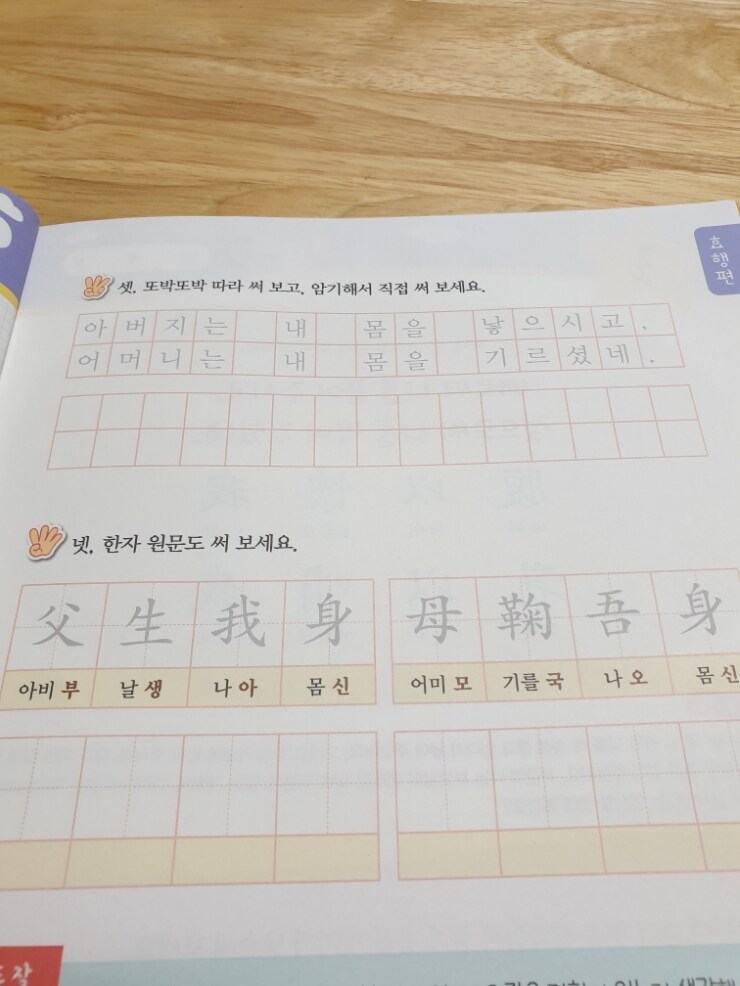 효행편
셋, 또박또박 따라 써 보고, 암기해서 직접 써 보세요.
아버지는 내 몸을 낳으시고,
어머니는 내 몸을 기르셨네.
넷, 한자 원문도 써 보세요.
父生我身 母鞠吾身
아비 부 날 생 나 아 몸 신 어미 모 기를 국 나 오 몸 신